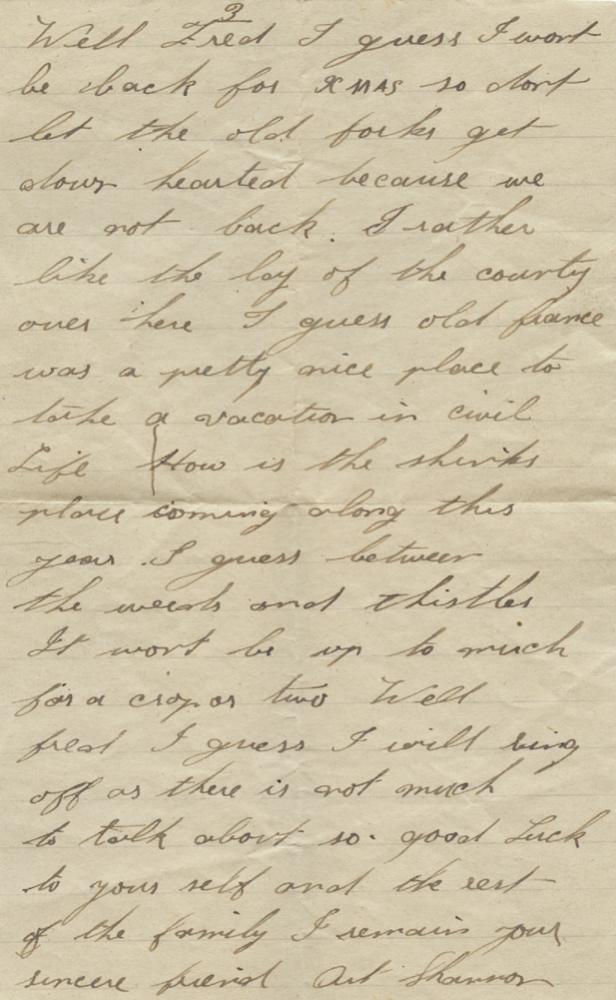 3
Well Fred I guess I wont
be back for XMAS so dont
let the old forks get
down hearted because we
are not back. I rather
like the lay of the county
over here I guess old france
was a pretty nice place to
take a vacation in civil
Life How is the
place coming along this
year. I guess between
the weeds and thistles
It wont be up to much
for a crop or two Well
fred I guess I will ring
off as there is not much
to talk about so. good Luck
to your self and the rest
of the family I remain your
sincere friend Art Shannon